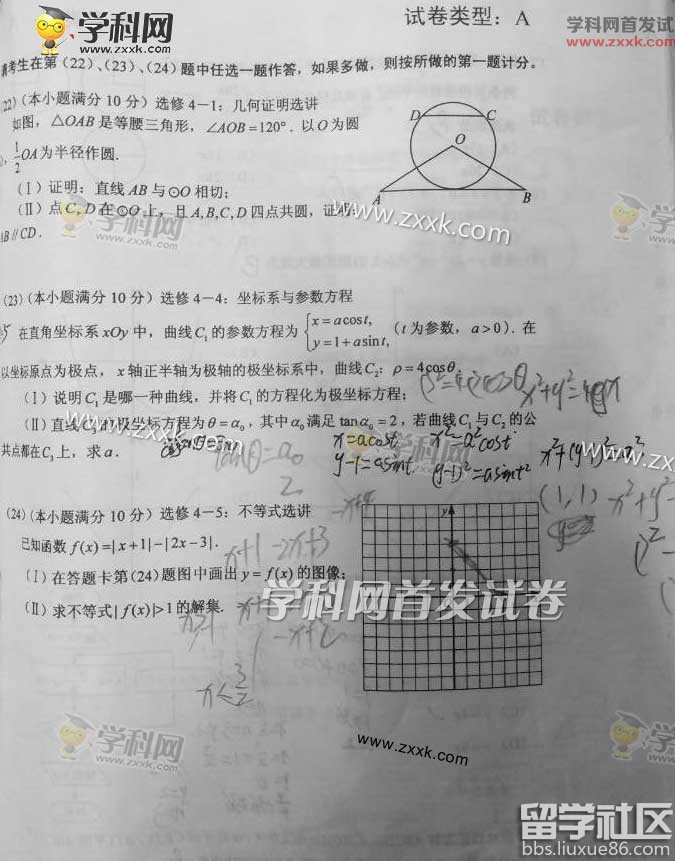 学科网
www.zxxk.com
试卷类型：A
学科网首发试
www.zxxk.c
请考生在第（22）、（23）、（24）题中任选一题作答，如果多做，则按所做的第一题计分。
22）（本小题满分 10 分）选修 4－1：几何证明选讲
如图，△OAB 是等腰三角形，∠AOB＝120°．以 O 为圆
，1/2 OA 为半径作圆．
（Ⅰ）证明：直线 AB 与⊙O 相切；
（Ⅱ）点 C, D 在⊙O 上，且 A,B,C,D 四点共圆，证明：
AB // CD．
D C
O
A B
www.zxxk.com
学科网
www.zxxk.com
(23)（本小题满分 10 分）选修 4－4：坐标系与参数方程
在直角坐标系 xOy 中，曲线 C₁ 的参数方程为 { x = a cos t, y = 1 + a sin t,（t 为参数，a > 0）．在
以坐标原点为极点，x 轴正半轴为极轴的极坐标系中，曲线 C₂：ρ = 4cosθ．
（Ⅰ）说明 C₁ 是哪一种曲线，并将 C₁ 的方程化为极坐标方程；
（Ⅱ）直线 C₃ 的极坐标方程为 θ = α₀，其中 α₀ 满足 tan α₀ = 2，若曲线 C₁ 与 C₂ 的公
共点都在 C₃ 上，求 a．
www.zxxk.com
tanθ = a₀
2
x = a cost
y-1 = a sint
x² = a² cost
(y-1)² = a sint²
x²+(y-1)² = a²
(1,1) x²+y²
www.zxxk.com
(24)（本小题满分 10 分）选修 4－5：不等式选讲
已知函数 f(x) =| x + 1| − | 2x − 3|．
（Ⅰ）在答题卡第（24）题图中画出 y = f(x) 的图像；
（Ⅱ）求不等式 | f(x)|> 1 的解集．
-x+4
x+1-2x+3
y
学科网首发试卷
x < 3/2
学科网
www.zxxk.com
www.zxxk.com
留学社区
bbs.liuxue86.com